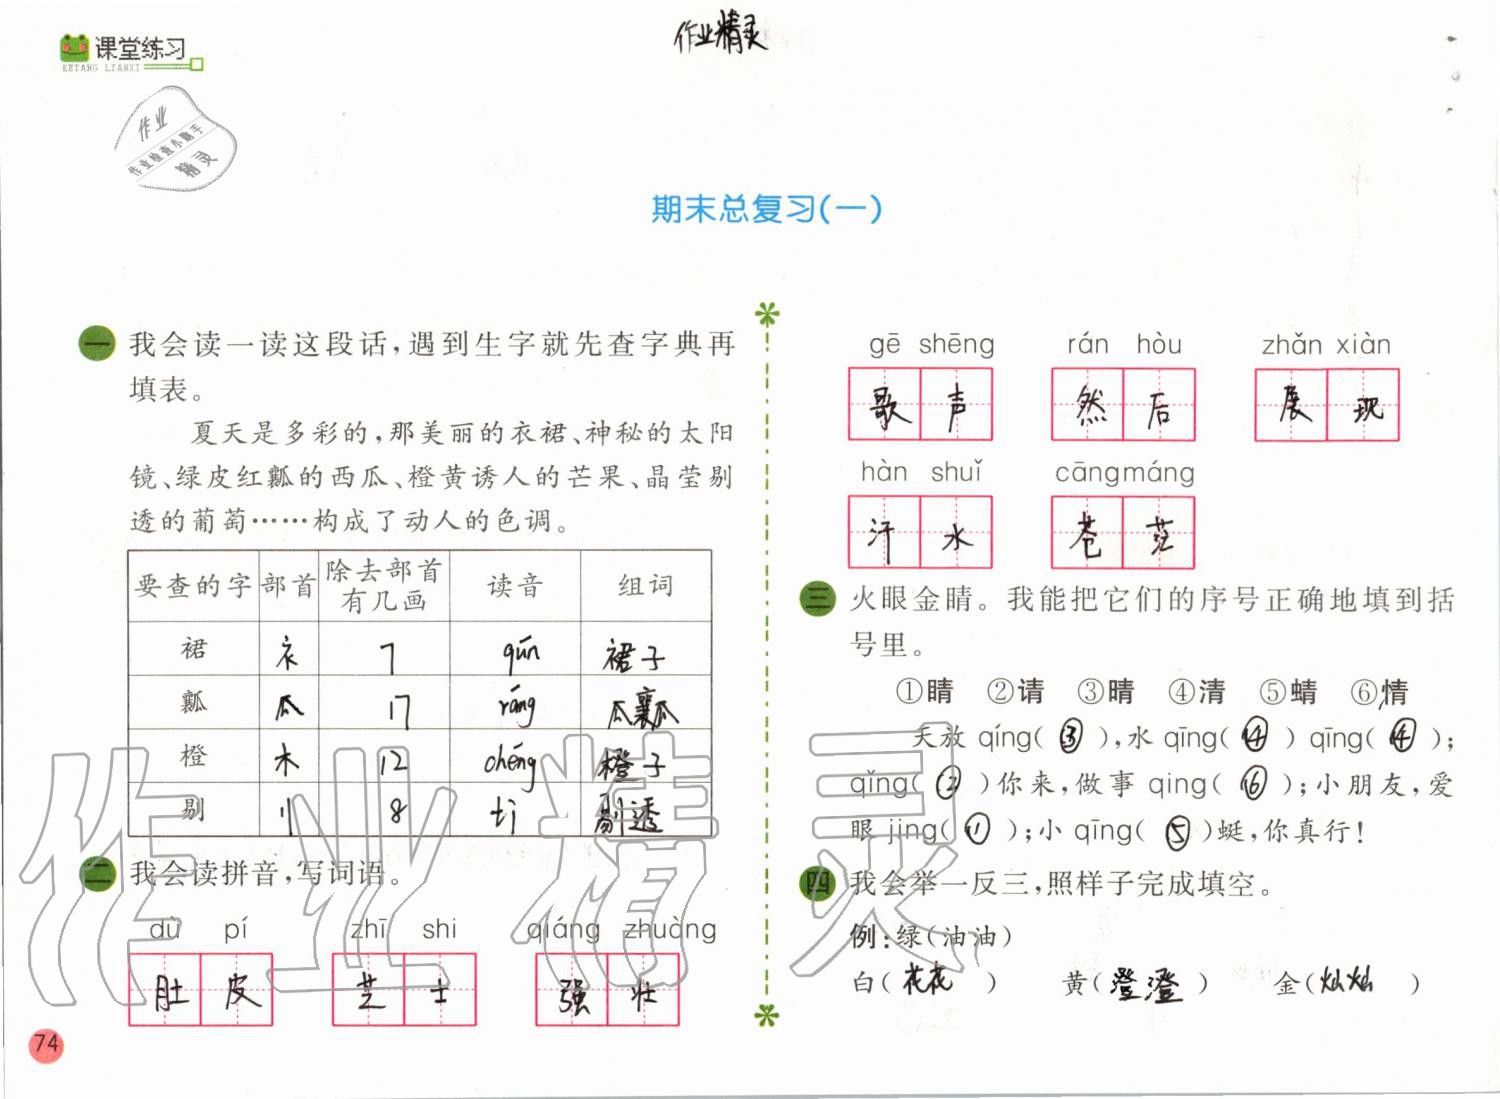 作业精灵
课堂练习
KETANG LIANXI
作业
作业检查小助手
精灵
期末总复习(一)
一 我会读一读这段话,遇到生字就先查字典再
填表。
夏天是多彩的,那美丽的衣裙、神秘的太阳
镜、绿皮红瓤的西瓜、橙黄诱人的芒果、晶莹剔
透的葡萄……构成了动人的色调。
要查的字 部首 除去部首有几画 读音 组词
裙 衣 7 qún 裙子
瓤 瓜 17 ráng 瓜瓤
橙 木 12 chéng 橙子
剔 刂 8 tī 剔透
二 我会读拼音,写词语。
dù pí zhī shi qiáng zhuàng
肚皮 芝士 强壮
74
gē shēng rán hòu zhǎn xiàn
歌声 然后 展现
hàn shuǐ cāng máng
汗水 苍茫
三 火眼金睛。我能把它们的序号正确地填到括
号里。
①睛 ②请 ③晴 ④清 ⑤蜻 ⑥情
天放 qíng( ③ ),水 qīng( ④ ) qīng( ④ );
qǐng( ② )你来,做事 qing( ⑥ );小朋友,爱
眼 jing( ① );小 qīng( ⑤ )蜓,你真行!
四 我会举一反三,照样子完成填空。
例:绿(油油)
白( 花花 ) 黄( 澄澄 ) 金( 灿灿 )
作业精灵